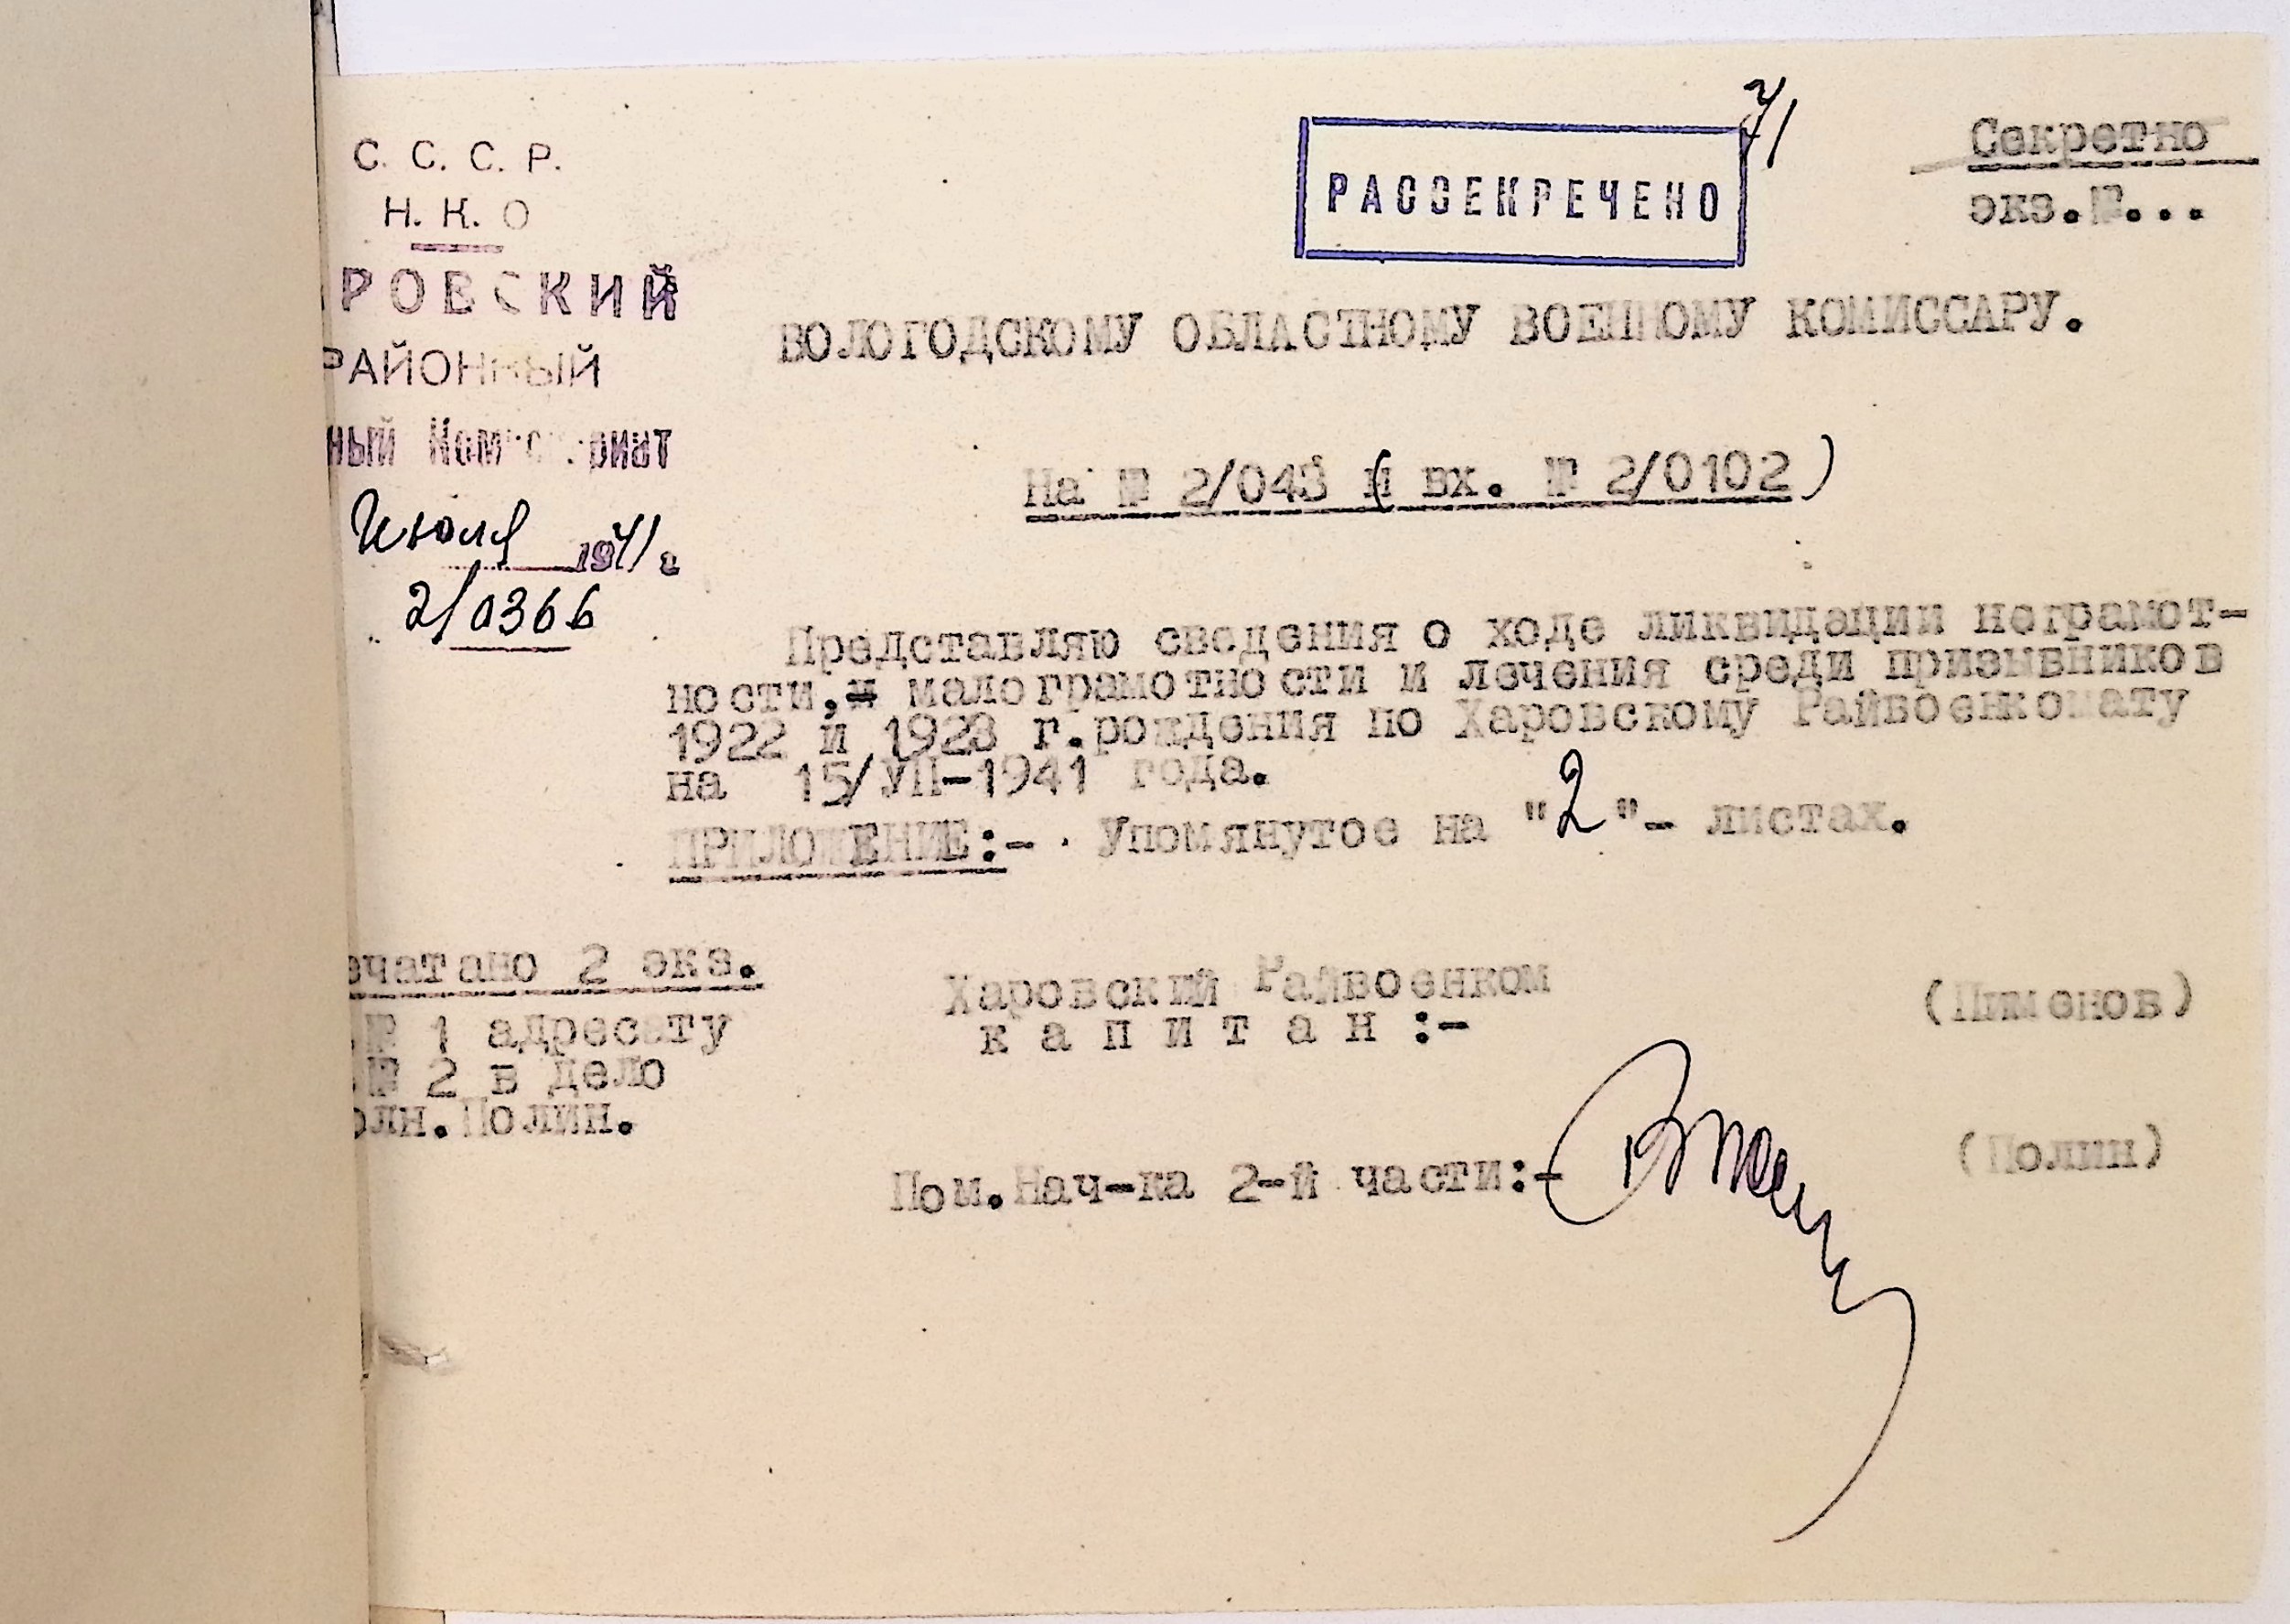 С. С. С. Р.
Н. К. О
РОВСКИЙ
РАЙОННЫЙ
ный Комиссариат
Июля 1941 г
2/0366
РАССЕКРЕЧЕНО
Секретно
экз.№...
ВОЛОГОДСКОМУ ОБЛАСТНОМУ ВОЕННОМУ КОМИССАРУ.
На № 2/043 ( вх. № 2/0102)
Представляю сведения о ходе ликвидации неграмот-
ности, малограмотности и лечения среди призывников
1922 и 1923 г.рождения по Харовскому Райвоенкомату
на 15/УП-1941 года.
ПРИЛОЖЕНИЕ:- Упомянутое на "2"- листах.
ечатано 2 экз.
№ 1 адресату
№ 2 в дело
олн.Полин.
Харовский Райвоенком
капитан:-
(Пименов)
Пом.Нач-ка 2-й части:-
(Полин)